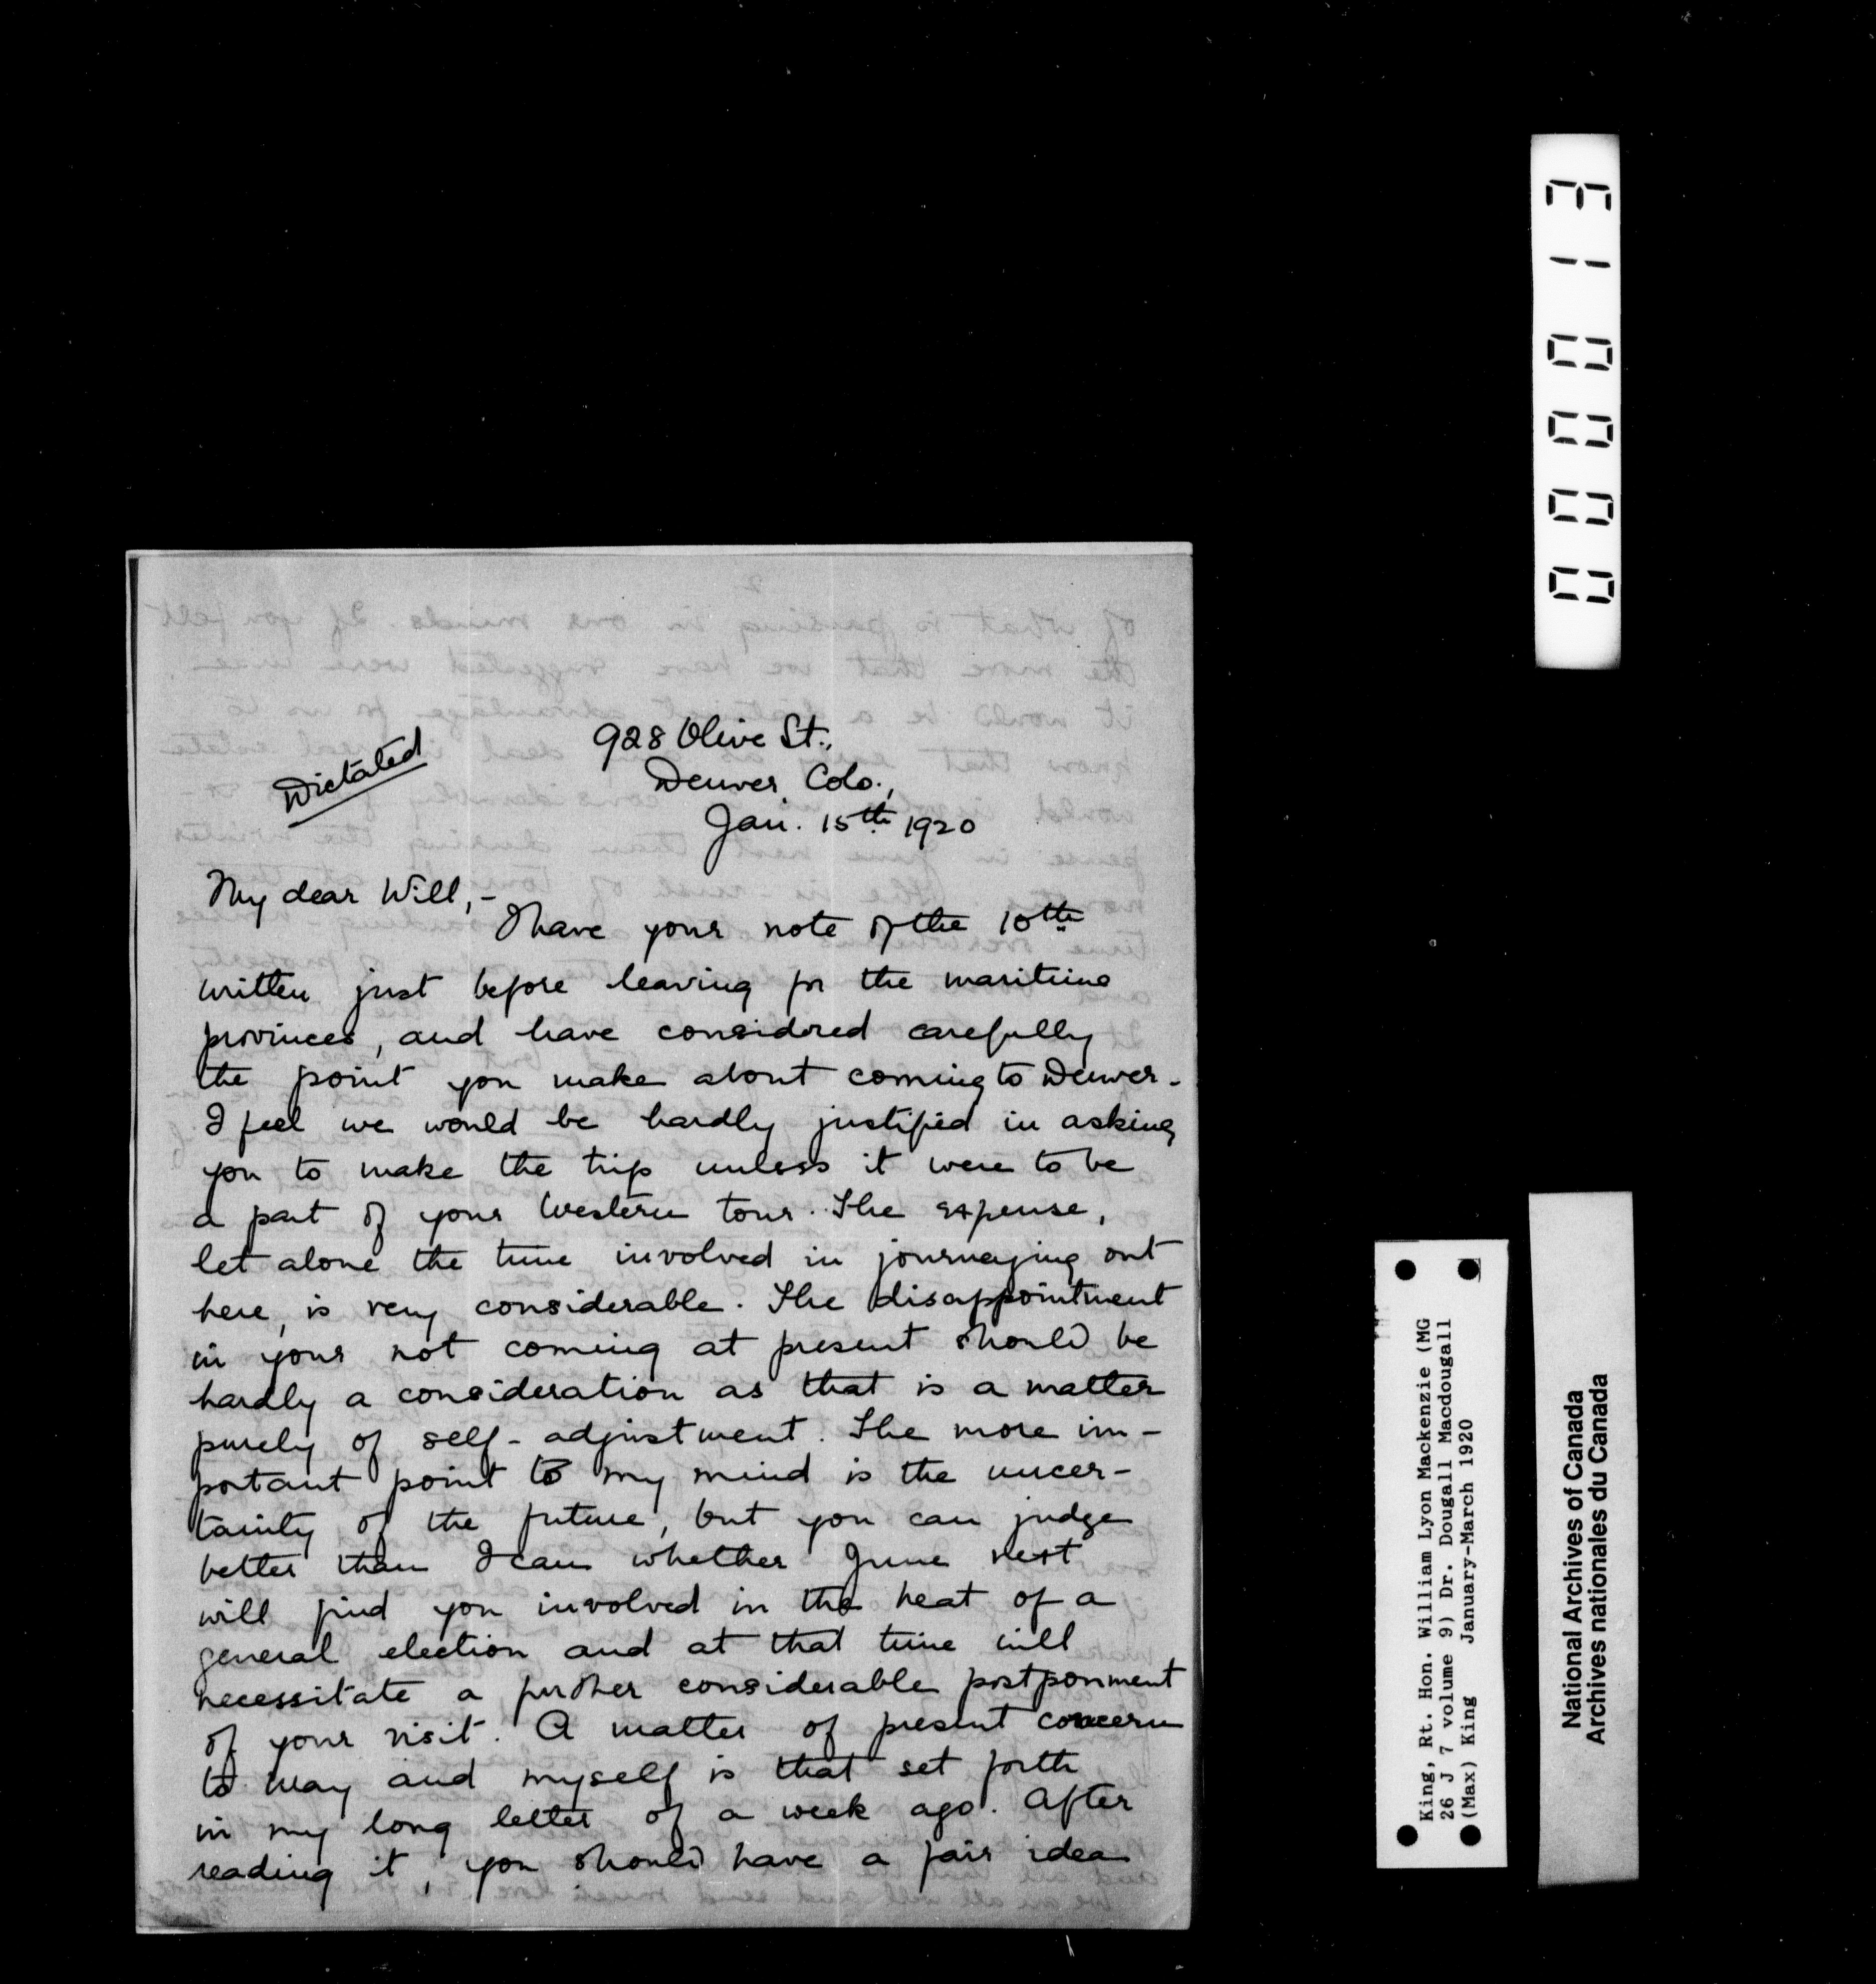 Dictated
928 Olive St.,
Denver, Colo.,
Jan. 15th 1920
My dear Will,-
I have your note of the 10th
written just before leaving for the maritime
provinces, and have considered carefully
the point you make about coming to Denver.
I feel we would be hardly justified in asking
you to make the trip unless it were to be
a part of your Western tour. The expense,
let alone the time involved in journeying out
here, is very considerable. The disappointment
in your not coming at present should be
hardly a consideration as that is a matter
purely of self-adjustment. The more im-
portant point to my mind is the uncer-
tainty of the future, but you can judge
better than I can whether June next
will find you involved in the heat of a
general election and at that time will
necessitate a further considerable postponment
of your visit. A matter of present concern
to May and myself is that set forth
in my long letter of a week ago. After
reading it, you should have a fair idea
000013
King, Rt. Hon. William Lyon Mackenzie (MG
26 J 7 volume 9) Dr. Dougall Macdougall
(Max) King January-March 1920
National Archives of Canada
Archives nationales du Canada